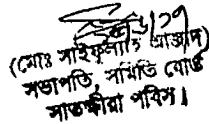 (মোঃ সাইফুল্লাহ আজাদ)
সভাপতি, সমিতি বোর্ড
সাতক্ষীরা পবিস।